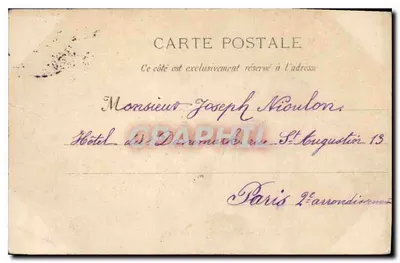 CARTE POSTALE
Ce côté est exclusivement réservé à l'adresse
Monsieur Joseph Nioulon
Hôtel du Danemark rue St Augustin 13
CPAPHIL
Paris 2e arrondissement